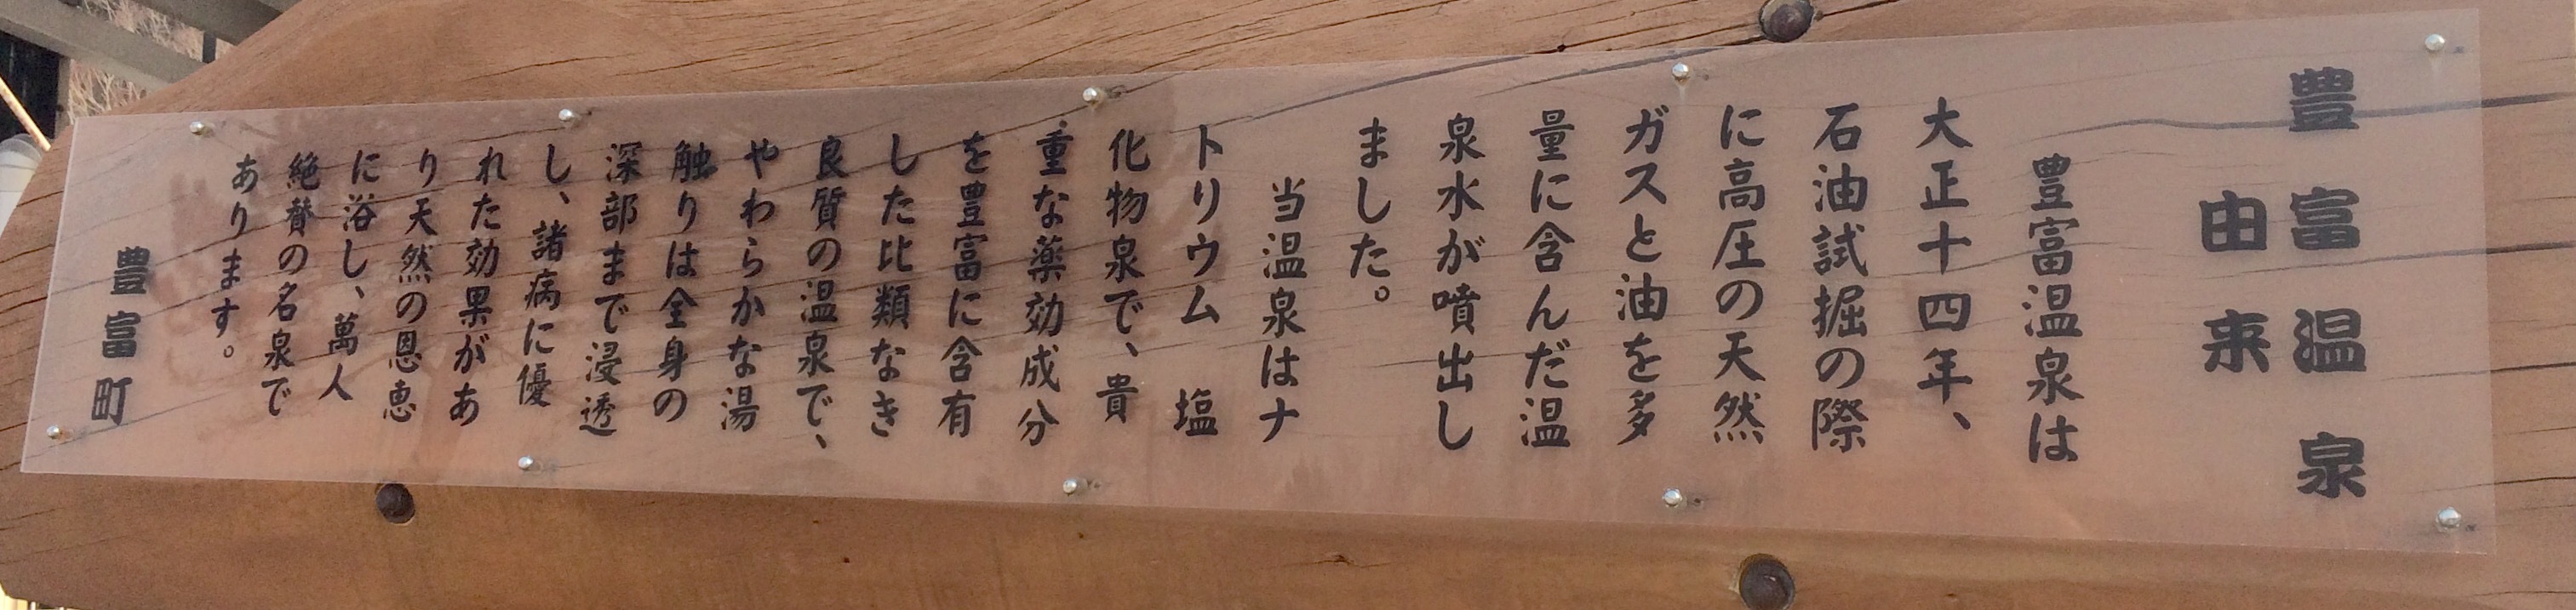 豊富温泉
由来
豊富温泉は
大正十四年、
石油試掘の際
に高圧の天然
ガスと油を多
量に含んだ温
泉水が噴出し
ました。
当温泉はナ
トリウム 塩
化物泉で、貴
重な薬効成分
を豊富に含有
した比類なき
良質の温泉で、
やわらかな湯
触りは全身の
深部まで浸透
し、諸病に優
れた効果があ
り天然の恩恵
に浴し、萬人
絶賛の名泉で
あります。
豊富町